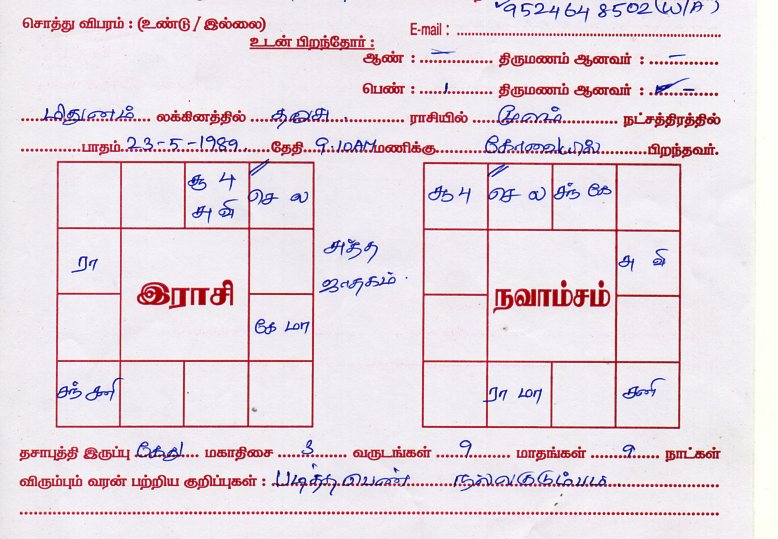 9524648502 (W/A)
சொத்து விபரம் : (உண்டு / இல்லை) E-mail :
உடன் பிறந்தோர் :
ஆண் : – திருமணம் ஆனவர் : –
பெண் : 1 திருமணம் ஆனவர் :
மிதுனம் லக்கினத்தில் தனுசு ராசியில் மூலம் நட்சத்திரத்தில்
பாதம் 23-5-1989 தேதி 9.10AM மணிக்கு கோவையில் பிறந்தவர்.
சூ 4 செ ல
அ வி
ரா
இராசி
கே மா
சந் சனி
அத்த
ஜாதகம்.
சூ 4 செ ல சந் கே
அ வி
நவாம்சம்
ரா மா சனி
தசாபுத்தி இருப்பு கேது மகாதிசை 3 வருடங்கள் 9 மாதங்கள் 9 நாட்கள்
விரும்பும் வரன் பற்றிய குறிப்புகள் : படித்த பெண் நல்லகுடும்பம்